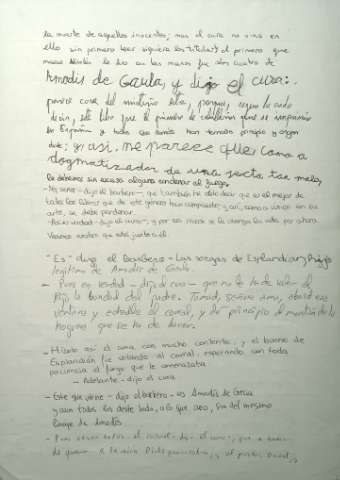 la muerte de aquellos inocentes; mas el cura no vino en
ello sin primero leer siquiera los títulos. Y el primero que
maese Nicolás le dio en las manos fue los cuatro de
Amadís de Gaula, y dijo el cura:
parece cosa de misterio esta, porque, según he oído
decir, este libro fue el primero de caballerías que se imprimió
en España, y todos los demás han tomado principio y origen
deste; y así, me parece que, como a
dogmatizador de una secta tan mala,
le debemos sin excusa alguna condenar al fuego.
- No, señor - dijo el barbero -, que también he oído decir que es el mejor de
todos los libros que de este género han compuesto; y así, como a único en su
arte, se debe perdonar.
- Así es verdad - dijo el cura -, y por esa razón se le otorga la vida por ahora.
Veamos esotro que está junto a él.
"Es" dijo el barbero - Las sergas de Esplandián, hijo
legítimo de Amadís de Gaula.
- Pues es verdad - dijo el cura - que no le ha de valer al
hijo la bondad del padre. Tomad, señora ama, abrid esa
ventana y echadle al corral, y dé principio al montón de la
hoguera que se ha de hacer.
- Hízolo así el ama con mucho contento, y el bueno de
Esplandián fue volando al corral, esperando con toda
paciencia el fuego que le amenazaba
- Adelante - dijo el cura
- Este que viene - dijo el barbero - es Amadís de Grecia
y aun todos los deste lado, a lo que creo, son del mesmo
linaje de Amadís
- Pues vayan todos al corral - dijo el cura -, que a trueco
de quemar a la reina Pintiquiniestra, y al pastor Darinel,